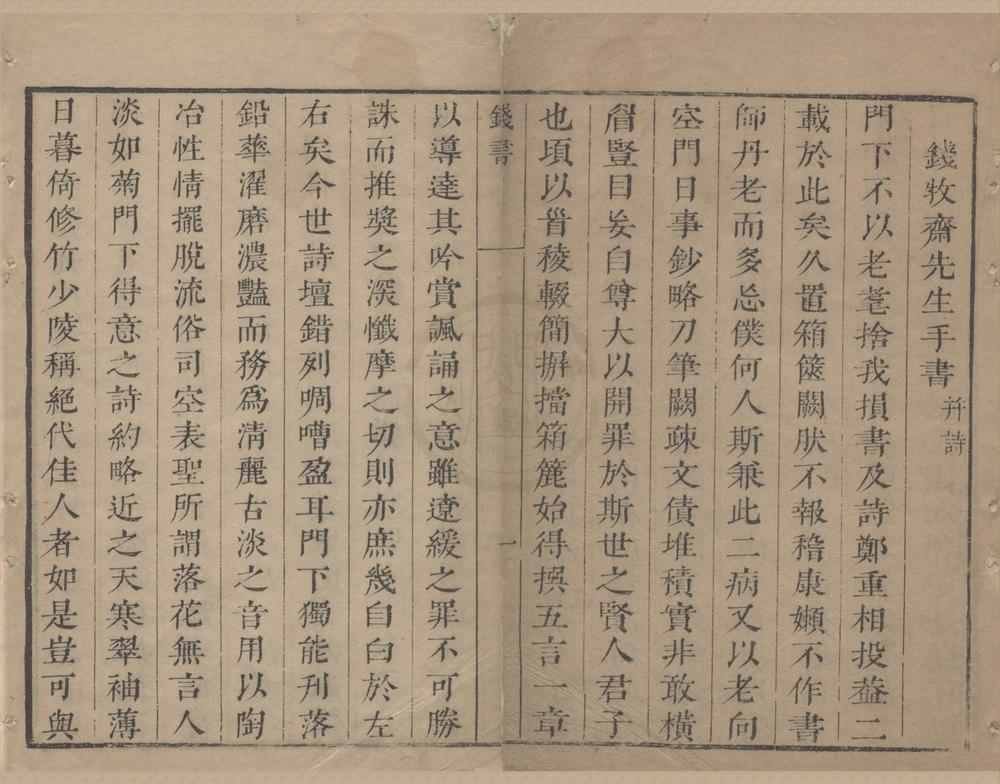 錢牧齋先生手書并詩
門下不以老耄捨我損書及詩鄭重相投葢二
載於此矣久置箱篋闕肰不報嵇康嬾不作書
師丹老而多忘僕何人斯兼此二病又以老向
空門日事鈔略刀筆闕疎文債堆積實非敢橫
眉豎目妄自尊大以開罪於斯世之賢人君子
也頃以眢稜輟簡摒擋箱簏始得撰五言一章
錢書 一
以導達其吟賞諷誦之意雖遼緩之罪不可勝
誅而推奬之深懺摩之切則亦庶幾自白於左
右矣今世詩壇錯列啁嘈盈耳門下獨能刋落
鉛華濯磨濃豔而務爲淸麗古淡之音用以陶
冶性情擺脫流俗司空表聖所謂落花無言人
淡如菊門下得意之詩約略近之天寒翠袖薄
日暮倚修竹少陵稱絕代佳人者如是豈可與